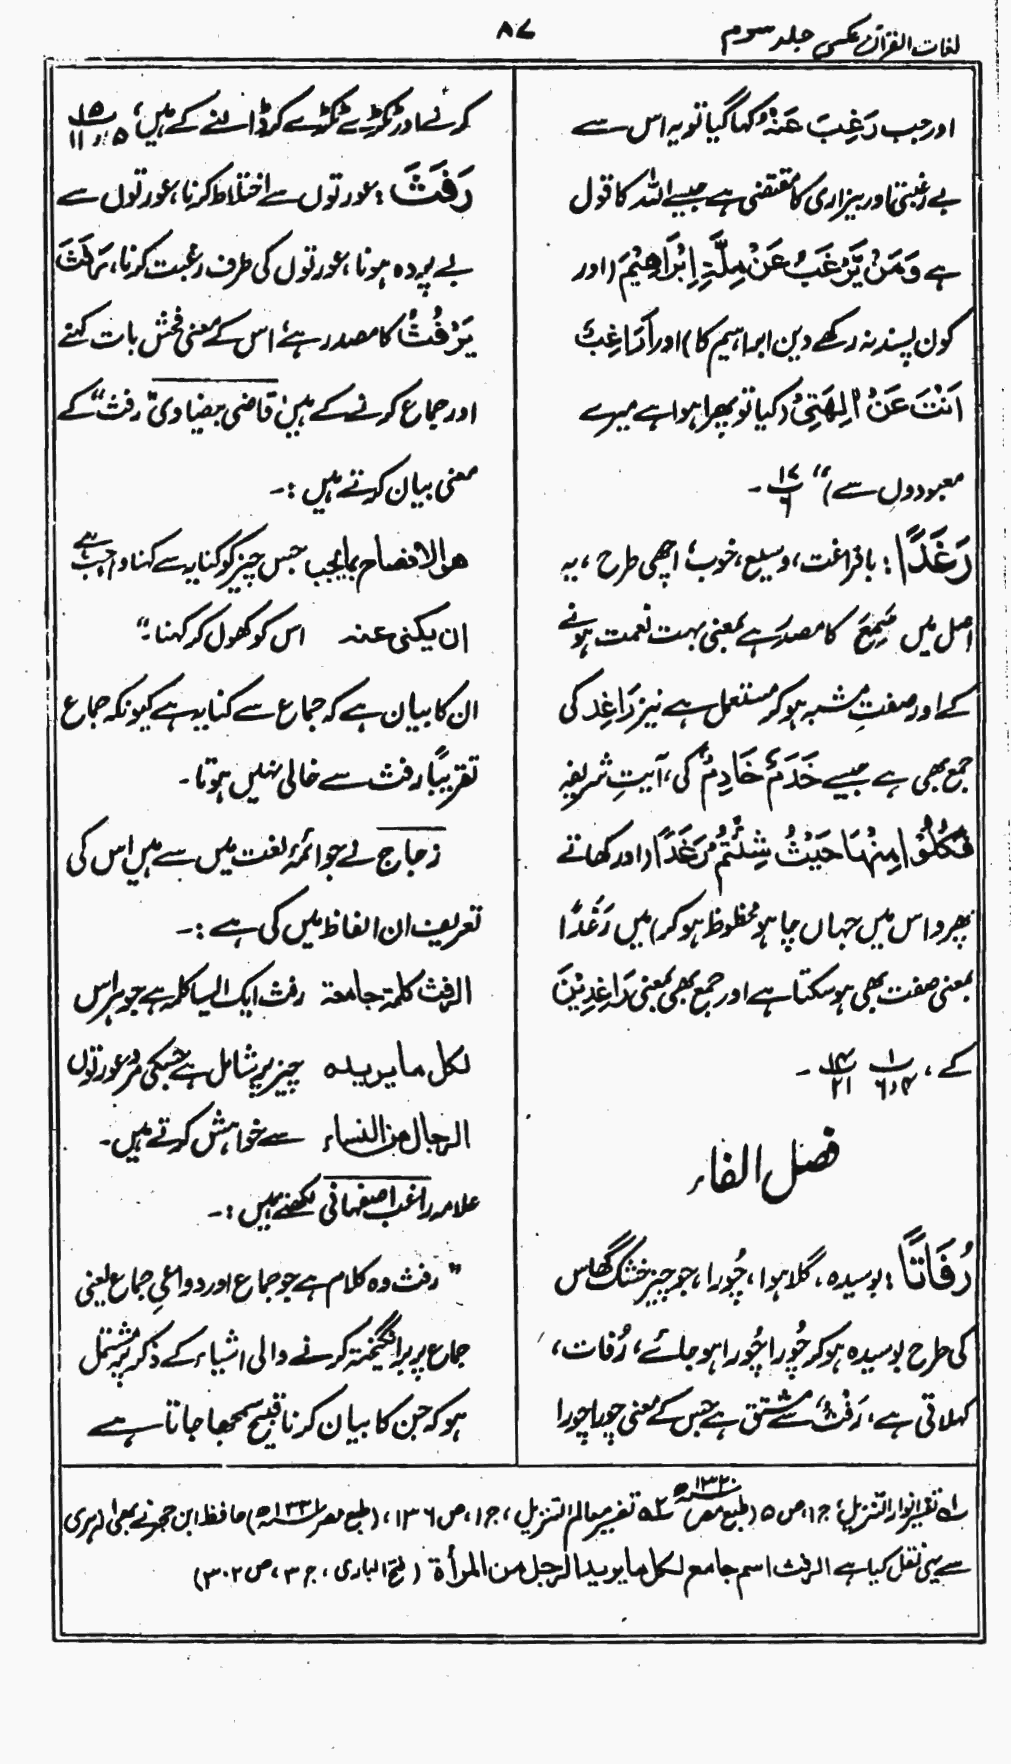 لغات القرآن عکسی جلد سوم
۸۷
اور جب رَغِبَ عَنْہُ کہا گیا تو یہ اس سے
بے رغبتی اور بیزاری کا مقتضی ہے جیسے اللہ کا قول
ہے وَمَنْ یَّرْغَبُ عَنْ مِلَّۃِ اِبْرَاھِیْمَ (اور
کون پسند نہ رکھے دین ابراہیم کا) اور اَرَاغِبٌ
اَنْتَ عَنْ اٰلِھَتِیْ (کیا تو پھرا ہوا ہے میرے
معبودوں سے)“ ۱۶/۶ ۔
رَغَدًا: بافراغت، وسیع، خوب، اچھی طرح، یہ
اصل میں سَمِعَ کا مصدر ہے بمعنی بہت نعمت ہونے
کے اور صفتِ مشبہ ہو کر مستعمل ہے نیز رَاغِد کی
جمع بھی ہے جیسے خَدَمٌ خَادِمٌ کی، آیتِ شریفہ
فَکُلُوْا مِنْہَا حَیْثُ شِئْتُمْ رَغَدًا (اور کھاتے
پھرو اس میں جہاں چاہو محظوظ ہو کر) میں رَغَدًا
بمعنی صفت بھی ہو سکتا ہے اور جمع بھی بمعنی رَاغِدِیْنَ
کے، ۱/۶،۴ ۱۴/۲۱ ۔
فصل الفاء
رُفَاتًا: بوسیدہ، گلا ہوا، چُورا، جو چیز خشک گھاس
کی طرح بوسیدہ ہو کر چُورا چُورا ہو جائے، رُفات،
کہلاتی ہے، رَفْتٌ سے مشتق ہے جس کے معنی چورا چورا
کرنے اور ٹکڑے ٹکڑے کر ڈالنے کے ہیں، ۱۵/۵،۱۱
رَفَثَ: عورتوں سے اختلاط کرنا، عورتوں سے
بے پردہ ہونا، عورتوں کی طرف رغبت کرنا، رَفَثَ
یَرْفُثُ کا مصدر ہے، اس کے معنی فحش بات کہنے
اور جماع کرنے کے ہیں، قاضی بیضاوی ”رفث“ کے
معنی بیان کرتے ہیں:۔
ھو الافصاح بما یجب جس چیز کو کنایہ سے کہنا واجب ہے
ان یکنی عنہ اس کو کھول کر کہنا۔“
ان کا بیان ہے کہ جماع سے کنایہ ہے کیونکہ جماع
تقریباً رفث سے خالی نہیں ہوتا۔
زجاج نے جو ائمۂ لغت میں سے ہیں اس کی
تعریف ان الفاظ میں کی ہے:۔
الرفث کلمۃ جامعۃ رفث ایک ایسا کلمہ ہے جو ہر اس
لکل ما یریدہ چیز پر شامل ہے جسکی مرد عورتوں
الرجال من النساء سے خواہش کرتے ہیں۔
علامہ راغب اصفہانی لکھتے ہیں:۔
”رفث وہ کلام ہے جو جماع اور دواعی جماع یعنی
جماع پر برانگیختہ کرنے والی اشیاء کے ذکر پر مشتمل
ہو کہ جن کا بیان کرنا قبیح سمجھا جاتا ہے
لہ تفسیر انوار التنزیل، ج ۱، ص ۵ (طبع مصر ۱۳۲۰ھ) ۲ہ تفسیر معالم التنزیل، ج ۱، ص ۱۳۶، (طبع مصر ۱۳۳۱ھ) حافظ ابن حجر نے بھی ازہری
سے یہی نقل کیا ہے الرفث اسم جامع لکل ما یرید الرجل من المرأۃ (فتح الباری، ج ۳، ص ۳۰۲)